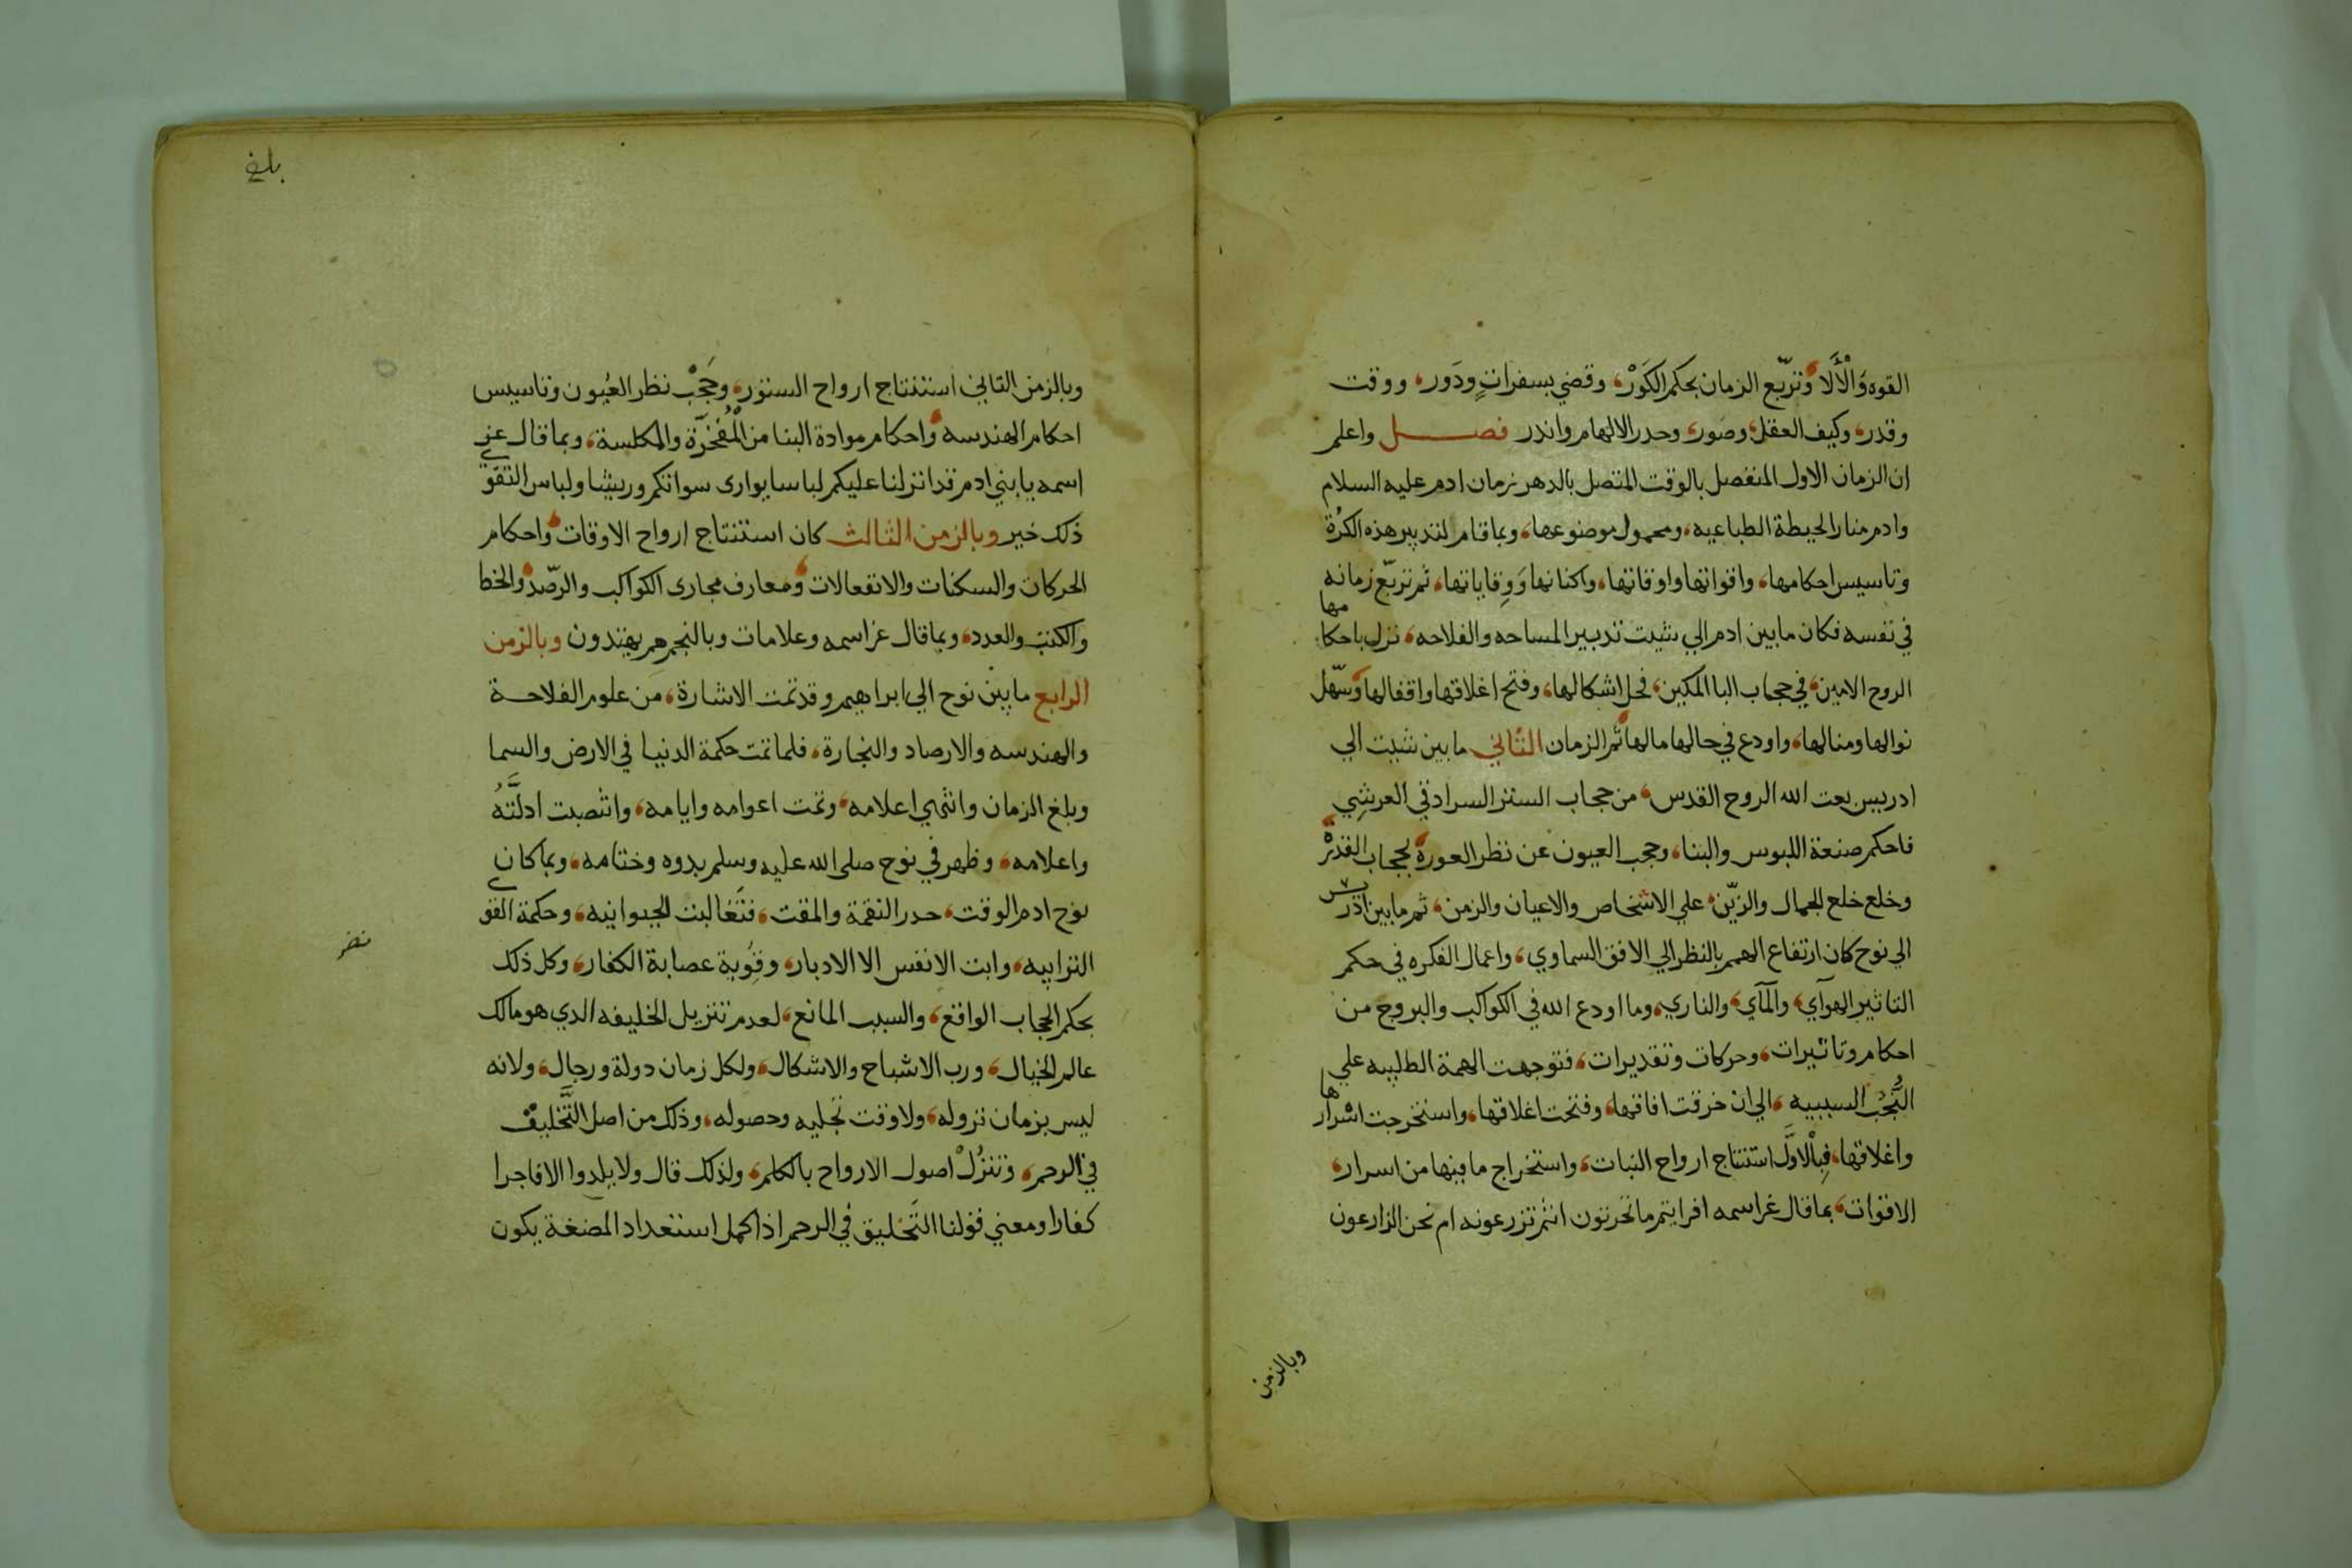 القوه وَالْأَلَا وتربّع الزمان بحكم الكَوْر، وقضي بسفراتٍ ودَور، ووقت
وقدر، وكيف العقل، وصور، وحدر الالهام واندر فصل واعلم
ان الزمان الاول المنفصل بالوقت المتصل بالدهر زمان ادم عليه السلام
وادم منار الحيطة الطباعيه، ومحمول موضوعها، وبما قام لتدبير هذه الكُرة
وتاسيس احكامها، واقواتها واوقاتها، واكنانها وَوِقاياتها، ثم تربّع زمانه
في نفسه فكان مابين ادم الي شيت تدبير المساحه والفلاحه، نزل باحكامها
الروح الامين، في حجاب البا المكين، فحل اشكالها، وفتح اغلاقها واقفالها وسهّل
نوالها ومنالها، واودع في حالها مالها ثم الزمان الثاني مابين شيت الي
ادريس بعت الله الروح القدس، من حجاب الستر السرادقي العرشِي
فاحكم صنعة اللبوس والبنا، وحجب العيون عن نظر العورة بحجاب القدرة
وخلع خلع الجمال والزيّن، علي الاشخاص والاعيان والزمن، ثم مابين ادريس
الي نوح كان ارتفاع الهمم بالنظر الي الافق السماوي، واعمال الفكره في حكم
التاثير الهوآي، والمآي، والناري، وما اودع الله في الكواكب والبروج من
احكام وتاثيرات، وحركات وتقديرات، فتوجهت الهمة الطلبيه علي
النُّجُب السببيه، الي ان خرقت افاقها، وفتحت اغلاقها، واستخرجت اسرارها
واغلاقها، فبِالْاوَّل استنتاج ارواح النبات، واستخراج مافيها من اسرار،
الاقوات، بما قال عز اسمه افرايتم ما تحرتون انتم تزرعونه ام نحن الزارعون
وبالزمن
بلغ
وبالزمن التاني استنتاج ارواح الستور، وحَجَبْ نظر العيُون وتاسيس
احكام الهندسه واحكام موادة البنا من الْمُفخَّرَة والمكلسة، وبما قال عز
اسمه يابني ادم قد انزلنا عليكم لباسا يواري سواتكم وريشا ولباس التقوي
ذلك خير وبالزمن الثالث كان استنتاج ارواح الاوقات واحكام
الحركات والسكنات والانفعالات ومعارف مجاري الكواكب والرصّد والخط
والكتب والعدد، وبما قال عز اسمه وعلامات وبالنجم هم يهتدون وبالزمن
الرابع مابين نوح الي ابراهيم وقد تمت الاشارة، من علوم الفلاحة
والهندسه والارصاد والنجارة، فلما تمت حكمة الدنيا في الارض والسما
وبلغ الزمان وانتهي اعلامه، وتمت اعوامه وايامه، وانتصبت ادلَّتهُ
واعلامه، وظهر في نوح صلى الله عليه وسلم بدوه وختامه، وبما كان
نوح ادم الوقت، حدر النقمة والمقت، فتَغالبت الحيوانيه، وحكمة القوي
الترابيه، وابت الانفس الا الادبار، وقَوِيَة عصابة الكفار، وكل ذلك
بحكم الحجاب الواقع، والسبب المانع، لعدم تنزيل الخليفه الدي هو مالك
عالم الخيال، ورب الاشباح والاشكال، ولكل زمان دولة ورجال، ولانه
ليس بزمان نزوله، ولا وقت تجليه وحصوله، وذلك من اصل التَّخليق
في الرحم، وتنزُلْ اصول الارواح بالكلم، ولذلك قال ولا يلدوا الا فاجرا
كفارا ومعني قولنا التَخليق في الرحم اذا كمل استعداد المضغة يكون